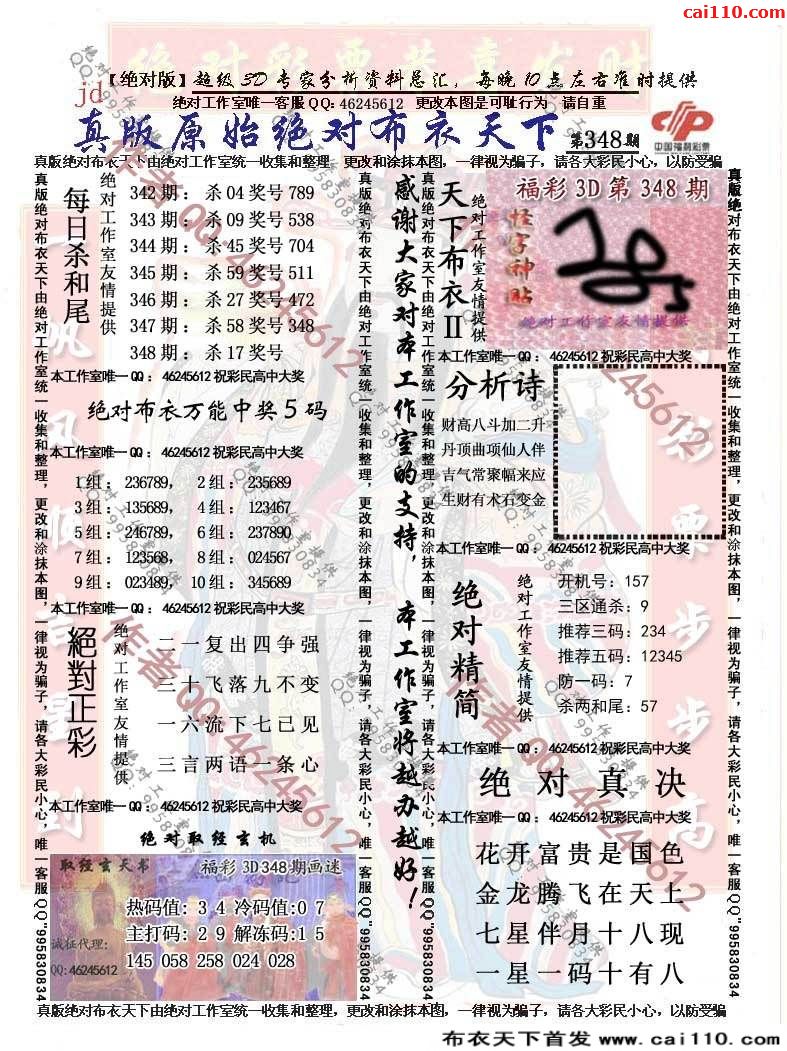 cai110.com
【绝对版】超级3D专家分析资料总汇，每晚10点左右准时提供
绝对工作室唯一客服QQ:46245612 更改本图是可耻行为 请自重
jd
真版原始绝对布衣天下 第348期
中国福利彩票
真版绝对布衣天下由绝对工作室统一收集和整理，更改和涂抹本图，一律视为骗子，请各大彩民小心，以防受骗
每日杀和尾
绝对工作室友情提供
342期：杀04奖号789
343期：杀09奖号538
344期：杀45奖号704
345期：杀59奖号511
346期：杀27奖号472
347期：杀58奖号348
348期：杀17奖号
本工作室唯一QQ：46245612祝彩民高中大奖
绝对布衣万能中奖5码
本工作室唯一QQ：46245612祝彩民高中大奖
1组：236789， 2组：235689
3组：135689， 4组：123467
5组：246789， 6组：237890
7组：123568， 8组：024567
9组：023489， 10组：345689
本工作室唯一QQ：46245612祝彩民高中大奖
絕對正彩
绝对工作室友情提供
二一复出四争强
三十飞落九不变
一六流下七已见
三言两语一条心
本工作室唯一QQ：46245612祝彩民高中大奖
绝对取经玄机
取经玄天书
福彩3D348期画迷
热码值：34冷码值:07
主打码：29解冻码:15
145 058 258 024 028
诚征代理:
QQ:46245612
感谢大家对本工作室的支持，本工作室将越办越好！
天下布衣II
绝对工作室友情提供
福彩3D第348期
怪字神贴
绝对工作室友情提供
本工作室唯一QQ：46245612祝彩民高中大奖
分析诗
财高八斗加二升
丹顶曲项仙人伴
吉气常聚幅来应
生财有术石变金
本工作室唯一QQ：46245612祝彩民高中大奖
绝对精简
绝对工作室友情提供
开机号：157
三区通杀：9
推荐三码：234
推荐五码：12345
防一码：7
杀两和尾：57
本工作室唯一QQ：46245612祝彩民高中大奖
绝对真决
本工作室唯一QQ：46245612祝彩民高中大奖
花开富贵是国色
金龙腾飞在天上
七星伴月十八现
一星一码十有八
真版绝对布衣天下由绝对工作室统一收集和整理，更改和涂抹本图，一律视为骗子，请各大彩民小心，唯一客服QQ"995830834
真版绝对布衣天下由绝对工作室统一收集和整理，更改和涂抹本图，一律视为骗子，请各大彩民小心，唯一客服QQ"995830834
真版绝对布衣天下由绝对工作室统一收集和整理，更改和涂抹本图，一律视为骗子，请各大彩民小心，唯一客服QQ"995830834
真版绝对布衣天下由绝对工作室统一收集和整理，更改和涂抹本图，一律视为骗子，请各大彩民小心，唯一客服QQ"995830834
真版绝对布衣天下由绝对工作室统一收集和整理，更改和涂抹本图，一律视为骗子，请各大彩民小心，以防受骗
作者QQ:46245612
布衣天下首发 www.cai110.com